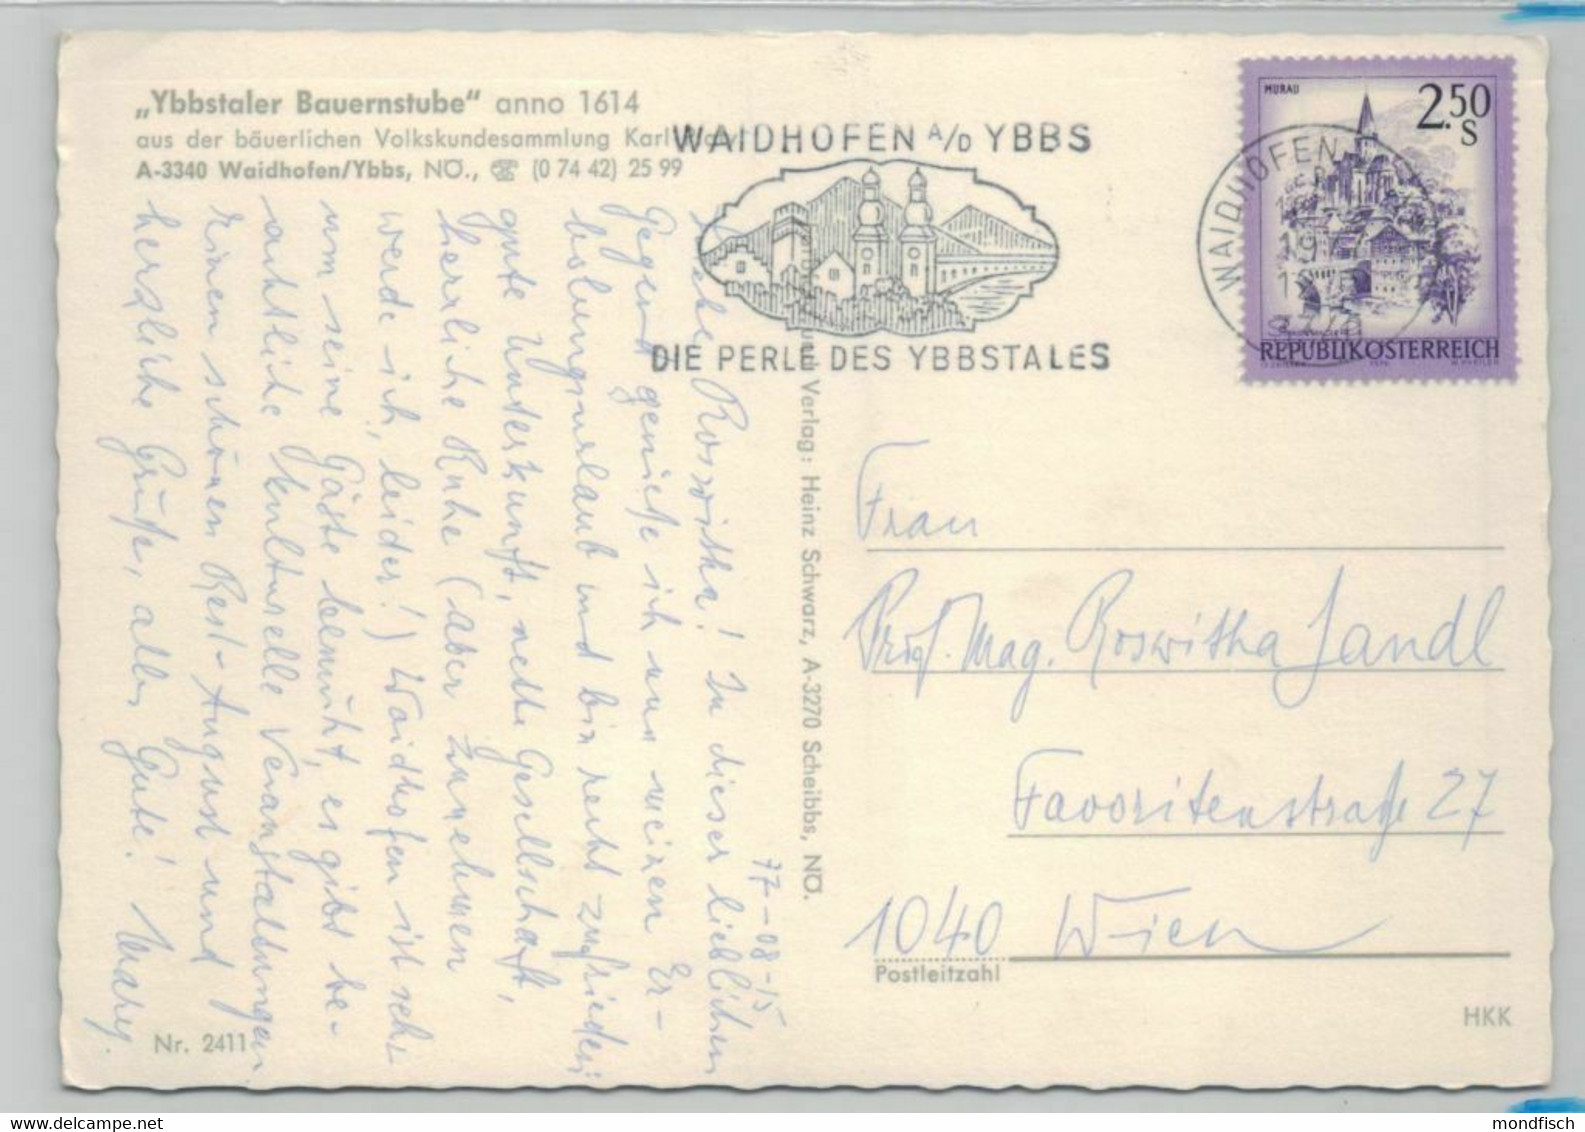 „Ybbstaler Bauernstube“ anno 1614
aus der bäuerlichen Volkskundesammlung Karl
A-3340 Waidhofen/Ybbs, NÖ., ☎ (0 74 42) 25 99
WAIDHOFEN A/D YBBS
DIE PERLE DES YBBSTALES
MURAU
2.50
S
REPUBLIK ÖSTERREICH
WAIDHOFEN
77-08-15
Roswitha! In dieser lieblichen
Gegend genieße ich nun meinen Er-
holungsurlaub und bin recht zufrieden
gute Unterkunft, nette Gesellschaft,
herrliche Ruhe (aber zunehmen
werde ich, leider!) Waidhofen ist sehr
um seine Gäste bemüht, es gibt be-
achtliche kulturelle Veranstaltungen
einen schönen Rest-August und
herzliche Grüße, alles Gute! Mary.
Verlag: Heinz Schwarz, A-3270 Scheibbs, NÖ.
Frau
Prof. Mag. Roswitha Jandl
Favoritenstraße 27
1040 Wien
Postleitzahl
Nr. 2411
HKK
mondfisch